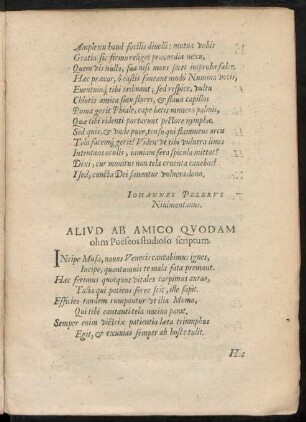 Amplexu haud facilis divelli: mutua vobis
Gratia sic firmo religet præcordia nexu,
Quem vis nulla, sua nisi mors secet improba falce.
Hæc precor, ô casti faveant modò Numina votis,
Eventumq́ tibi tribuant, sed respice, vultu
Chloris amica suo flores, & flava capillos
Poma gerit Phiale, cape lætis munera palmis,
Quæ tibi ridenti portarunt pectore nymphæ.
Sed quis, & unde puer, tenso qui flammeus arcu
Tela facemq́ gerit? Viden' ut tibi vulnera limis
Intentans oculis, iamiam fera spicula mittat?
Dixi, cur monitus non tela cruenta cavebas?
I sed, cuncta Dei sanentur vulnera dona.
IOHANNES PELERVS
Nivimontanus.
ALIVD AB AMICO QVODAM
olim Poëseos studioso scriptum.
INcipe Musa, novos Veneris cantabimus ignes,
Incipe, quantumvis te mala fata premant.
Hac ferimus quotquot vitales carpimus auras,
Talia qui patiens ferre scit, ille sapit.
Efficies tandem rumpantur ut ilia Momo,
Qui tibi cantanti tela nociva parat,
Semper enim victrix patientia læta triumphos
Egit, & exuvias semper ab hoste tulit.